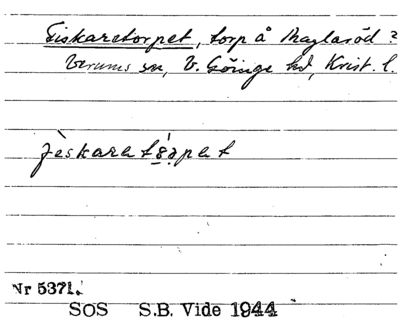 Fiskaretorpet, torp å Maglaröd ?
Verums sn, V. Göinge hd, Krist. l.
Nr 5371.
SOS S.B. Vide 1944